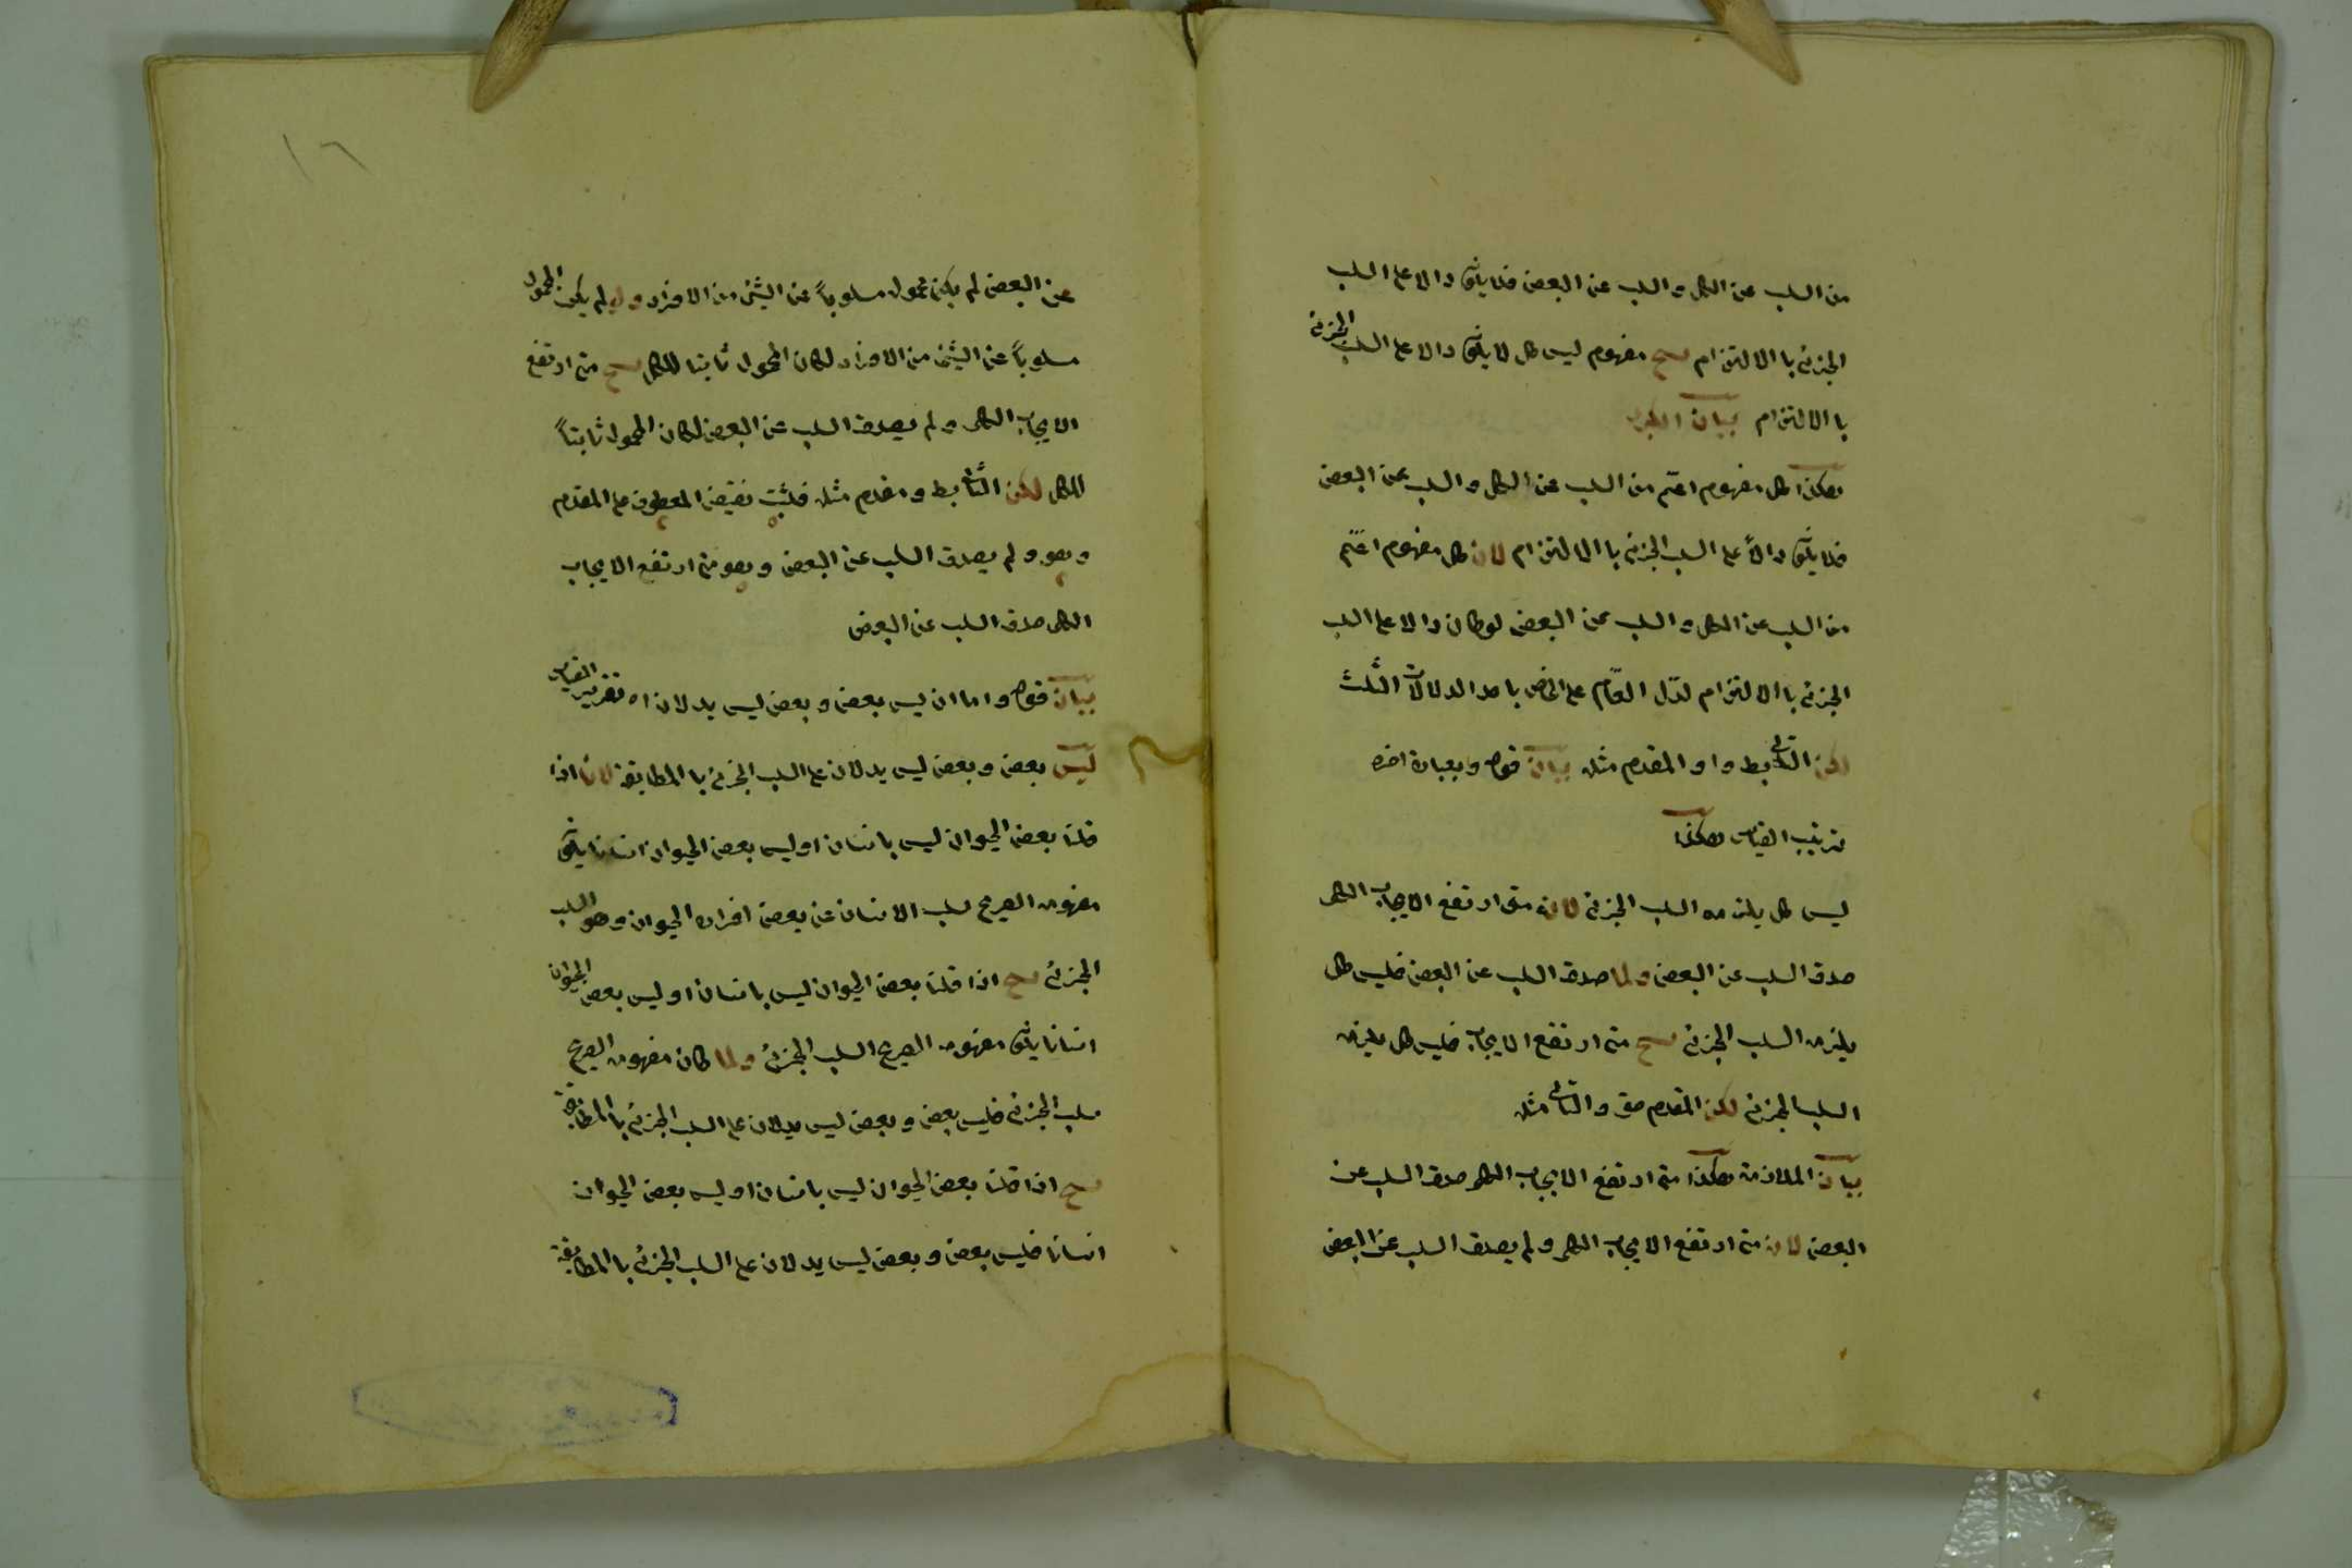 من السلب عن الكل والسلب عن البعض فلا يكون دالا على السلب
الجزئي باالالتزام ينتج مفهوم ليس كل لا يكون دالا على السلب الجزئي
باالالتزام بيان الكبرى
هكذا كل مفهوم اعم من السلب عن الكل والسلب عن البعض
فلا يكون دالاً على السلب الجزئي باالالتزام لان كل مفهوم اعم
من السلب عن الكل والسلب عن البعض لو كان دالا على السلب
الجزئي باالالتزام لدل العام على الخاص باحد الدلالات الثلث
لكن التالي بط والمقدم مثله بيان قوله وبعبارة اخرى
ترتيب القياس هكذا
ليس كل يلزمه السلب الجزئي لانه متى ارتفع الايجاب الكلى
صدق السلب عن البعض ولما صدق السلب عن البعض فليس كل
يلزمه السلب الجزئي ينتج متى ارتفع الايجاب فليس كل يلزمه
السلب الجزئي لكن المقدم حق والتالي مثله
بيان الملازمة هكذا متى ارتفع الايجاب الكلى صدق السلب عن
البعض لان متى ارتفع الايجاب الكلى ولم يصدق السلب عن البعض
١٦
عن البعض لم يكن محموله مسلوباً عن الشئ من الافراد ولو لم يكن المحمول
مسلوباً عن الشئ من الافراد لكان المحمول ثابتا للكل ينتج متى ارتفع
الايجاب الكلى ولم يصدق السلب عن البعض لكان المحمول ثابتاً
للكل لكن التالي بط ومقدم مثله فثبت نقيض المعطوف على المقدم
وهو ولم يصدق السلب عن البعض وهو متى ارتفع الايجاب
الكلى صدق السلب عن البعض
بيان قوله واما ان ليس بعض وبعض ليس يدلان اه تقرير القياس
ليس بعض وبعض ليس يدلان على السلب الجزئي باالمطابقة لانا اذا
قلنا بعض الحيوان ليس بانسان او ليس بعض الحيوان انسانا يكون
مفهومه الصريح سلب الانسان عن بعض افراد الحيوان وهو السلب
الجزئي ينتج اذا قلنا بعض الحيوان ليس بانسان او ليس بعض الحيوان
انسانا يكون مفهومه الصريح السلب الجزئي ولما كان مفهومه الصريح
سلب الجزئي فليس بعض وبعض ليس يدلان على السلب الجزئي باالمطابقة
ينتج اذا قلنا بعض الحيوان ليس بانسان او ليس بعض الحيوان
انسانا فليس بعض وبعض ليس يدلان على السلب الجزئي باالمطابقة